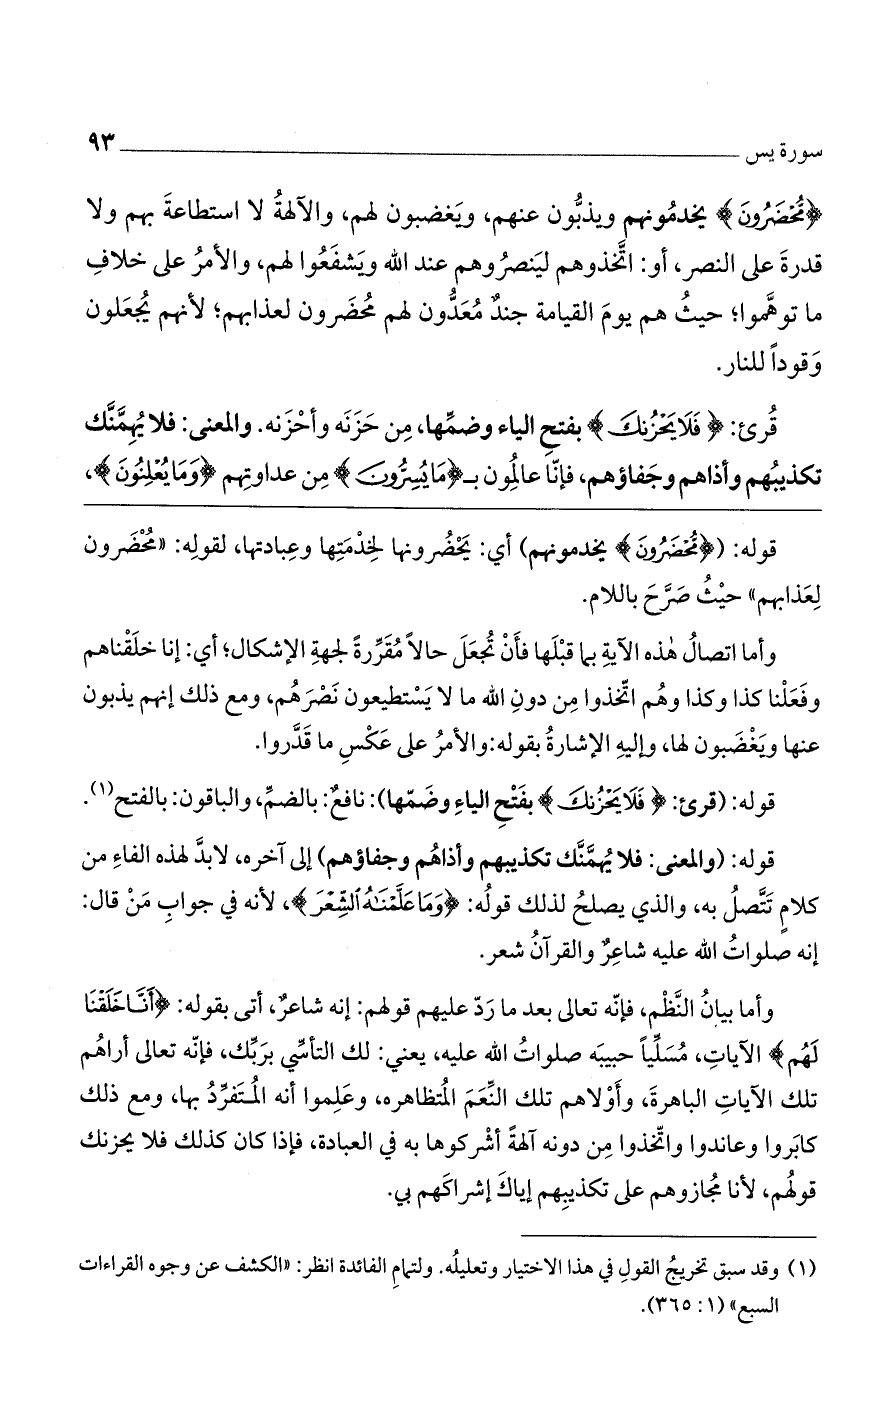 سورة يس ٩٣
﴿مُّحْضَرُونَ﴾ يخدمُونهم ويذبُّون عنهم، ويَغضبون لهم، والآلهةُ لا استطاعةَ بهم ولا
قدرةَ على النصر، أو: اتَّخذوهم ليَنصرُوهم عند الله ويَشفَعُوا لهم، والأمرُ على خلافِ
ما توهَّموا؛ حيثُ هم يومَ القيامة جندٌ مُعَدُّون لهم مُحضَرون لعذابهم؛ لأنهم يُجعَلون
وَقوداً للنار.
قُرئ: ﴿فَلَا يَحْزُنكَ﴾ بفتحِ الياء وضمِّها، مِن حَزَنَه وأحْزَنه. والمعنى: فلا يُهِمَّنَّك
تكذيبُهم وأذاهم وجَفاؤهم، فإنّا عالِمُون بـ﴿مَا يُسِرُّونَ﴾ مِن عداوتِهم ﴿وَمَا يُعْلِنُونَ﴾،
قوله: (﴿مُّحْضَرُونَ﴾ يخدمونهم) أي: يَحْضُرونها لِخِدْمَتِها وعِبادتها، لقولِه: «مُحْضَرون
لِعَذابهم» حيْثُ صَرَّحَ باللام.
وأما اتصالُ هٰذه الآيةِ بما قبْلَها فأَنْ تُجعَلَ حالاً مُقَرِّرةً لجهةِ الإشكال؛ أي: إنا خلَقْناهم
وفَعَلْنا كذا وكذا وهُم اتّخذوا مِن دونِ الله ما لا يَسْتطيعون نَصْرَهُم، ومع ذلك إنهم يذبون
عنها ويَغْضَبون لها، وإليهِ الإشارةُ بقوله:والأمرُ على عَكْسِ ما قَدَّروا.
قوله: (قرئ: ﴿فَلَا يَحْزُنكَ﴾ بفَتْحِ الياءِ وضَمّها): نافعٌ: بالضمِّ، والباقون: بالفتح(١).
قوله: (والمعنى: فلا يُهمَّنَّك تكذيبهم وأذاهُم وجفاؤهم) إلى آخره، لابدَّ لهذه الفاءِ من
كلامٍ تَتَّصلُ به، والذي يصلحُ لذلك قولُه: ﴿وَمَا عَلَّمْنَاهُ الشِّعْرَ﴾، لأنه في جوابِ مَنْ قال:
إنه صلواتُ الله عليه شاعِرٌ والقرآنُ شعر.
وأما بيانُ النَّظْم، فإنّه تعالى بعد ما رَدّ عليهم قولهم: إنه شاعرٌ، أتى بقوله: ﴿أَنَّا خَلَقْنَا
لَهُم﴾ الآياتِ، مُسَلِّياً حبيبَه صلواتُ الله عليه، يعني: لك التأسِّي برَبِّك، فإنّه تعالى أراهُم
تلك الآياتِ الباهرةَ، وأوْلاهم تلك النِّعَمَ المُتظاهره، وعَلِموا أنه المُـتَفرِّدُ بها، ومع ذلك
كابَروا وعاندوا واتّخذوا مِن دونه آلهةً أشْركوها به في العبادة، فإذا كان كذلك فلا يحزنك
قولُهم، لأنا مُجازوهم على تكذيبِهم إياكَ إشراكَهم بي.
(١) وقد سبق تخريجُ القولِ في هذا الاختيار وتعليلُه. ولتمامِ الفائدة انظر: «الكشف عن وجوه القراءات
السبع» (١: ٣٦٥).